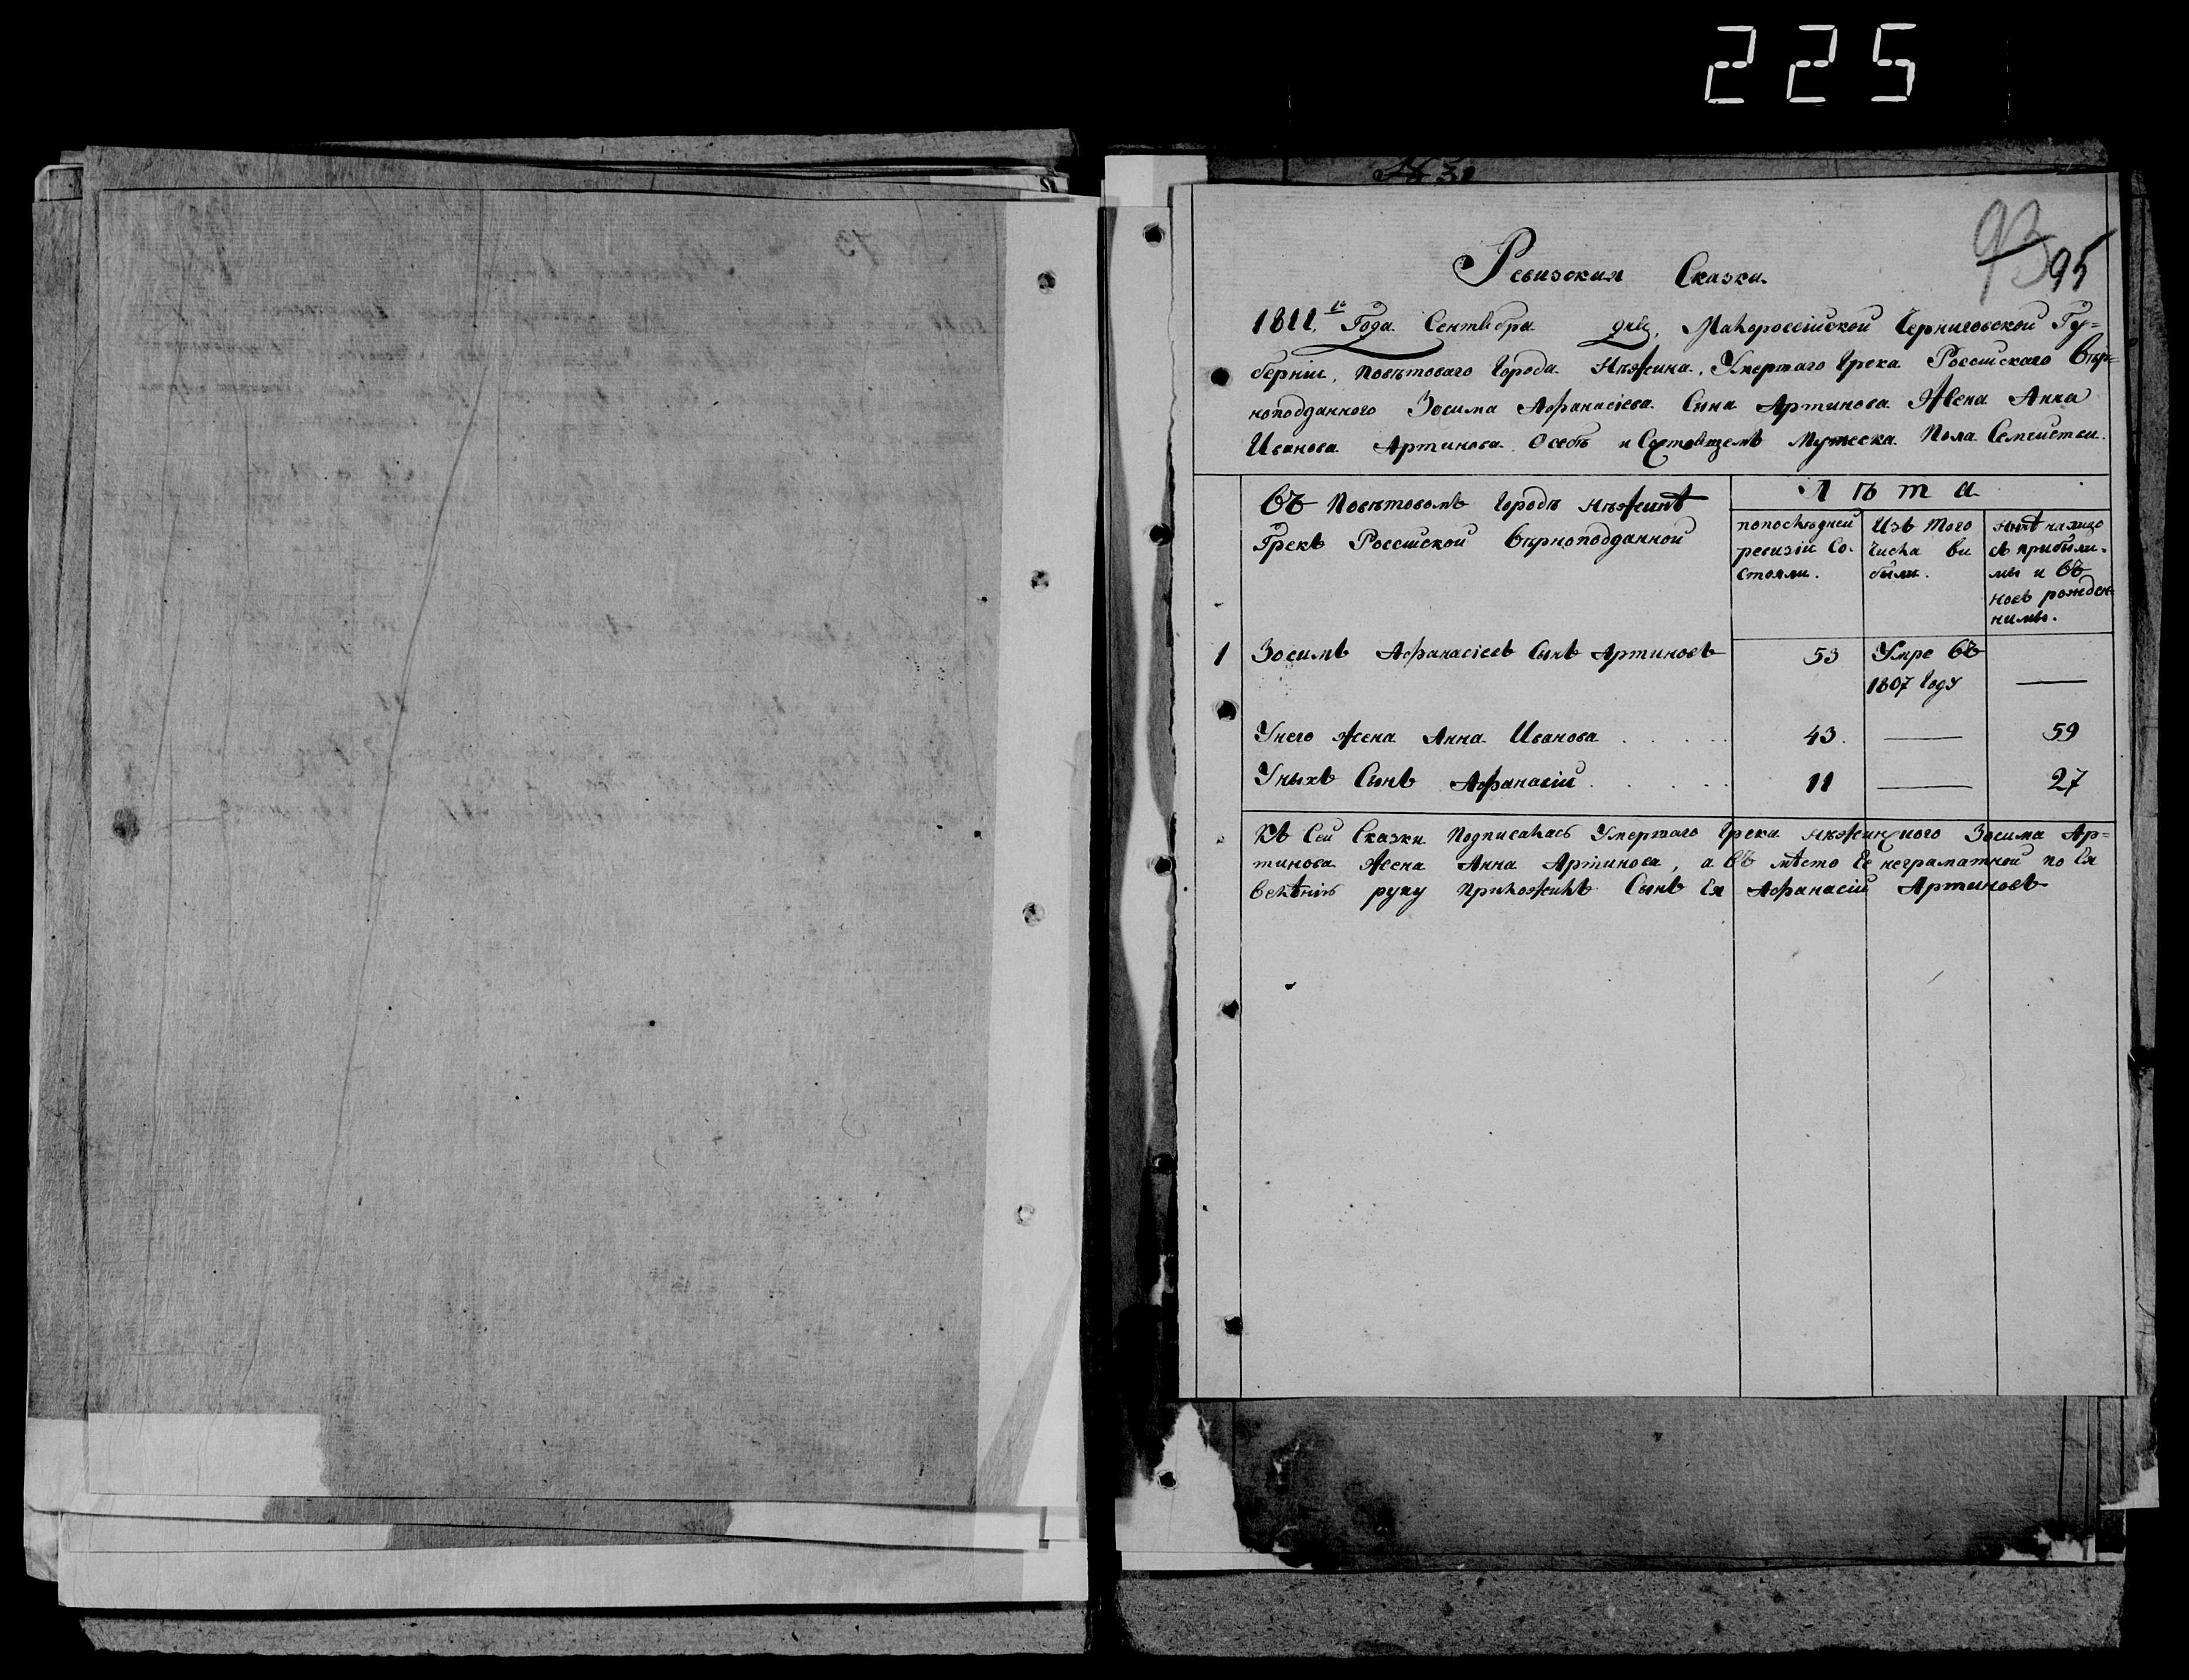 225
№ 31
93
95
Ревизская Сказка.
1811.го Года Сентября дня, Малороссійской Черниговской Гу=
берніи, Повѣтоваго Города Нѣжина, Умертаго Грека Россійскаго Вѣр=
ноподданного Зосима Афанасіева Сына Артинова Жена Анна
Иванова Артинова О себѣ и Мужеска Пола Семействи.
Въ Повѣтовомъ Городѣ Нѣжинѣ
Грекъ Россійской Вѣрноподданной
Лѣта
попослѣдней
ревизіи Со-
стояли.
Изъ того
Числа Вы
были.
Нынѣ на лицо
съ прибыли-
мы и Въ
новь рожден-
нимы.
1 Зосимъ Афанасіевъ Сынъ Артиновъ 53 Умре Въ
1807 Году —
Унего жена Анна Иванова 43. — 59
Уныхъ Сынъ Афанасій 11 — 27
Къ Сей Сказки Подписалась Умертаго Грека Нѣжинского Зосима Ар=
тинова Жена Анна Артинова, а въ мѣсто Ее неграматной по Ея
Велѣнію руку Приложилъ Сынъ Ея Афанасій Артиновъ